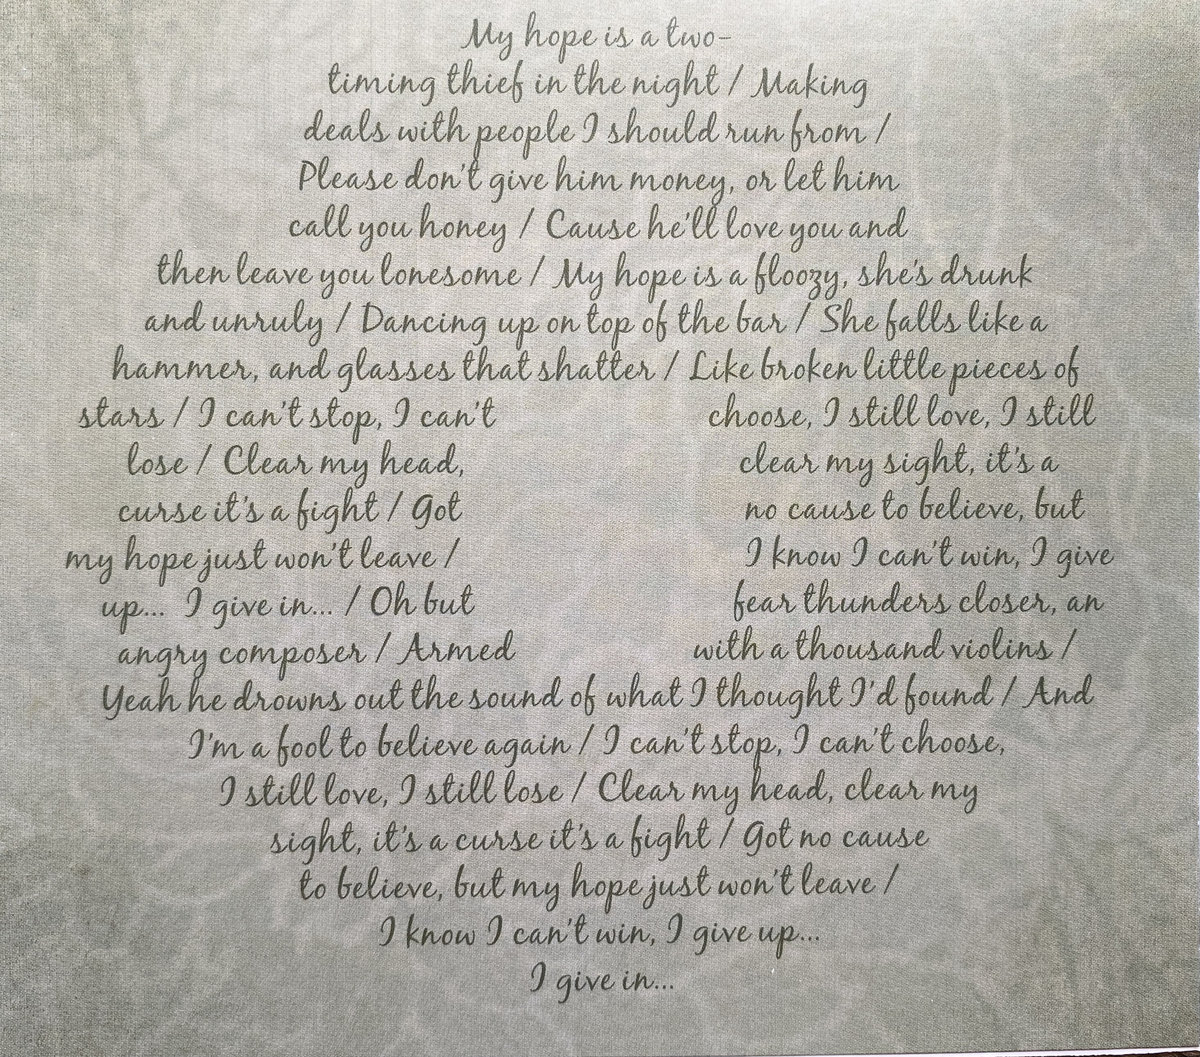 My hope is a two-
timing thief in the night / Making
deals with people I should run from /
Please don't give him money, or let him
call you honey / Cause he'll love you and
then leave you lonesome / My hope is a floozy, she's drunk
and unruly / Dancing up on top of the bar / She falls like a
hammer, and glasses that shatter / Like broken little pieces of
stars / I can't stop, I can't choose, I still love, I still
lose / Clear my head, clear my sight, it's a
curse it's a fight / Got no cause to believe, but
my hope just won't leave / I know I can't win, I give
up... I give in... / Oh but fear thunders closer, an
angry composer / Armed with a thousand violins /
Yeah he drowns out the sound of what I thought I'd found / And
I'm a fool to believe again / I can't stop, I can't choose,
I still love, I still lose / Clear my head, clear my
sight, it's a curse it's a fight / Got no cause
to believe, but my hope just won't leave /
I know I can't win, I give up...
I give in...